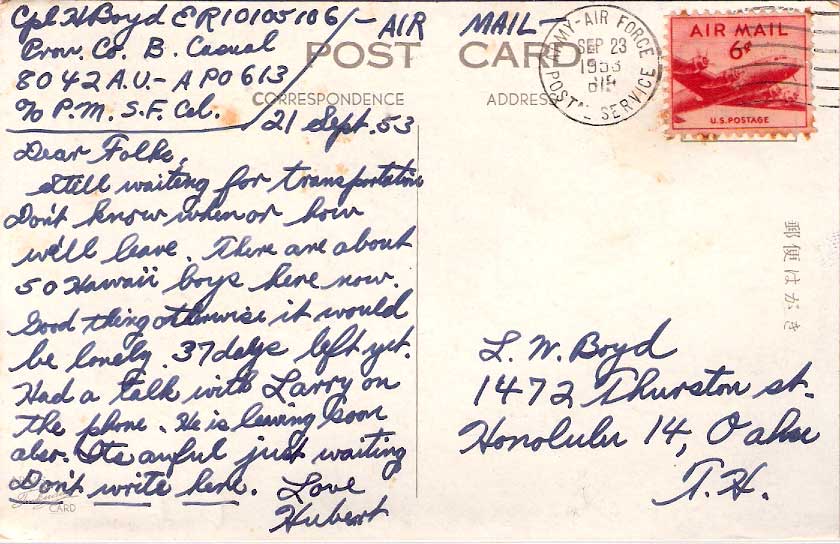 Cpl H Boyd ER10105106 - AIR MAIL -
Prov. Co. B. Casual
8042 A.U. - APO 613
c/o P.M. S.F. Cal.
POST CARD
CORRESPONDENCE ADDRESS
ARMY-AIR FORCE
SEP 23
1953
POSTAL SERVICE
AIR MAIL
6¢
U.S. POSTAGE
21 Sept. 53
Dear Folks,
Still waiting for transportation
Don't know when or how
we'll leave. There are about
50 Hawaii boys here now.
Good thing otherwise it would
be lonely. 37 days left yet.
Had a talk with Larry on
the phone. He is leaving soon
also. Its awful just waiting
Don't write here. Love
Hubert
CARD
郵便はがき
L. W. Boyd
1472 Thurston st.
Honolulu 14, Oahu
T.H.